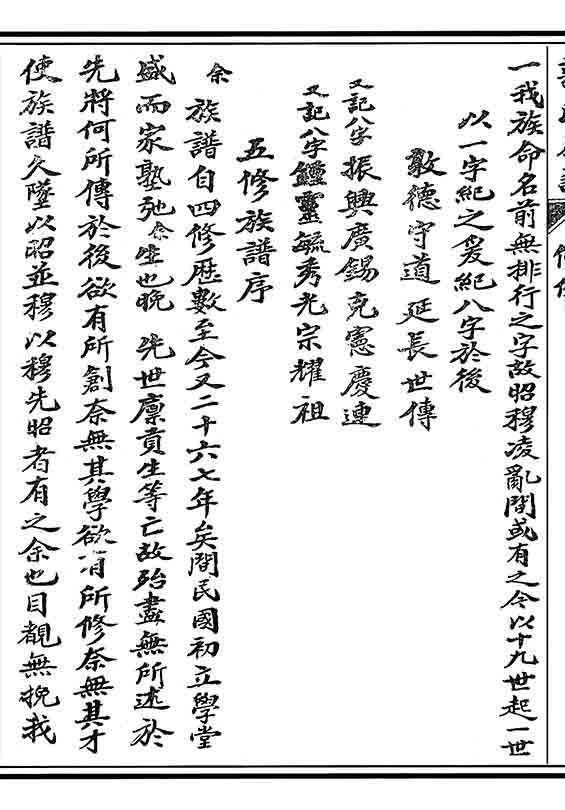 一我族命名前無排行之字故昭穆凌亂間或有之今以十九世起一世
以一字紀之爰紀八字於後
敦德守道延長世傳
又記八字振興廣錫克憲慶連
又記八字鍾靈毓秀光宗耀祖
五修族譜序
余族譜自四修歷數至今又二十六七年矣間民國初立學堂
盛而家塾弛余生也晚 先世廩貢生等亡故殆盡無所述於
先將何所傳於後欲有所創奈無其學欲有所修奈無其才
使族譜久墜以昭並穆以穆先昭者有之余也目覩無挽我